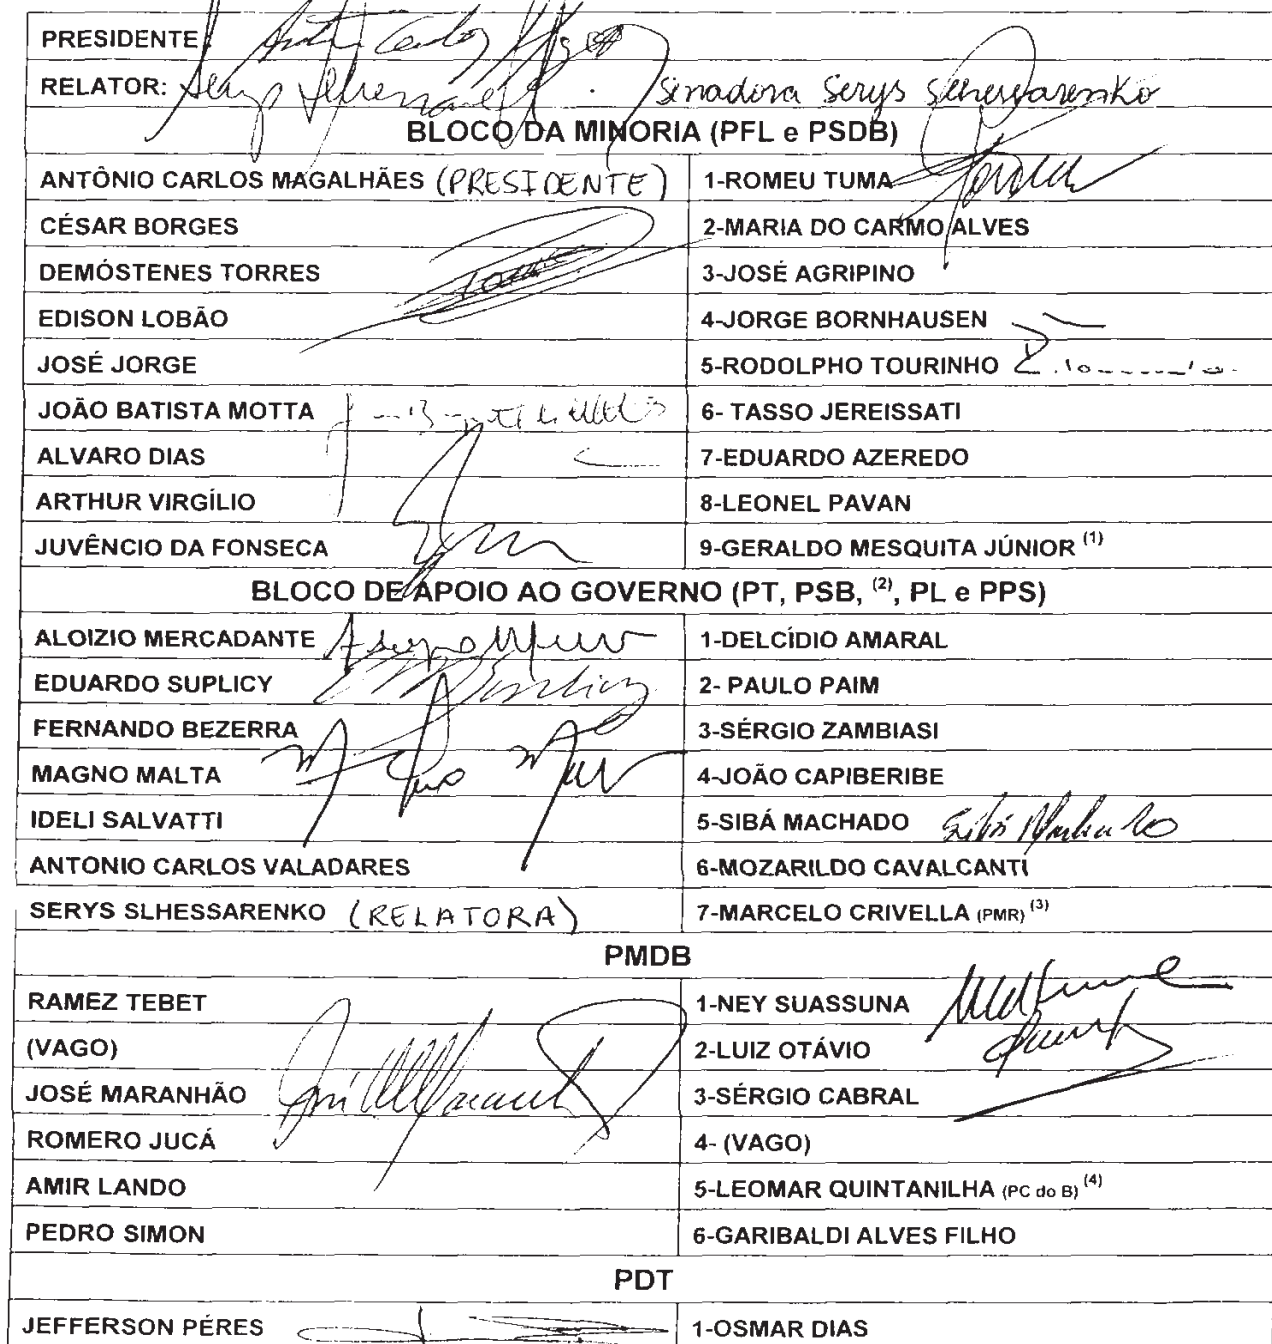 PRESIDENTE
RELATOR: Senadora Serys Slhessarenko
BLOCO DA MINORIA (PFL e PSDB)
ANTÔNIO CARLOS MAGALHÃES (PRESIDENTE) 1-ROMEU TUMA
CÉSAR BORGES 2-MARIA DO CARMO ALVES
DEMÓSTENES TORRES 3-JOSÉ AGRIPINO
EDISON LOBÃO 4-JORGE BORNHAUSEN
JOSÉ JORGE 5-RODOLPHO TOURINHO
JOÃO BATISTA MOTTA 6- TASSO JEREISSATI
ALVARO DIAS 7-EDUARDO AZEREDO
ARTHUR VIRGÍLIO 8-LEONEL PAVAN
JUVÊNCIO DA FONSECA 9-GERALDO MESQUITA JÚNIOR (1)
BLOCO DE APOIO AO GOVERNO (PT, PSB, (2), PL e PPS)
ALOIZIO MERCADANTE 1-DELCÍDIO AMARAL
EDUARDO SUPLICY 2- PAULO PAIM
FERNANDO BEZERRA 3-SÉRGIO ZAMBIASI
MAGNO MALTA 4-JOÃO CAPIBERIBE
IDELI SALVATTI 5-SIBÁ MACHADO Sibá Machado
ANTONIO CARLOS VALADARES 6-MOZARILDO CAVALCANTI
SERYS SLHESSARENKO (RELATORA) 7-MARCELO CRIVELLA (PMR) (3)
PMDB
RAMEZ TEBET 1-NEY SUASSUNA
(VAGO) 2-LUIZ OTÁVIO
JOSÉ MARANHÃO 3-SÉRGIO CABRAL
ROMERO JUCÁ 4- (VAGO)
AMIR LANDO 5-LEOMAR QUINTANILHA (PC do B) (4)
PEDRO SIMON 6-GARIBALDI ALVES FILHO
PDT
JEFFERSON PÉRES 1-OSMAR DIAS